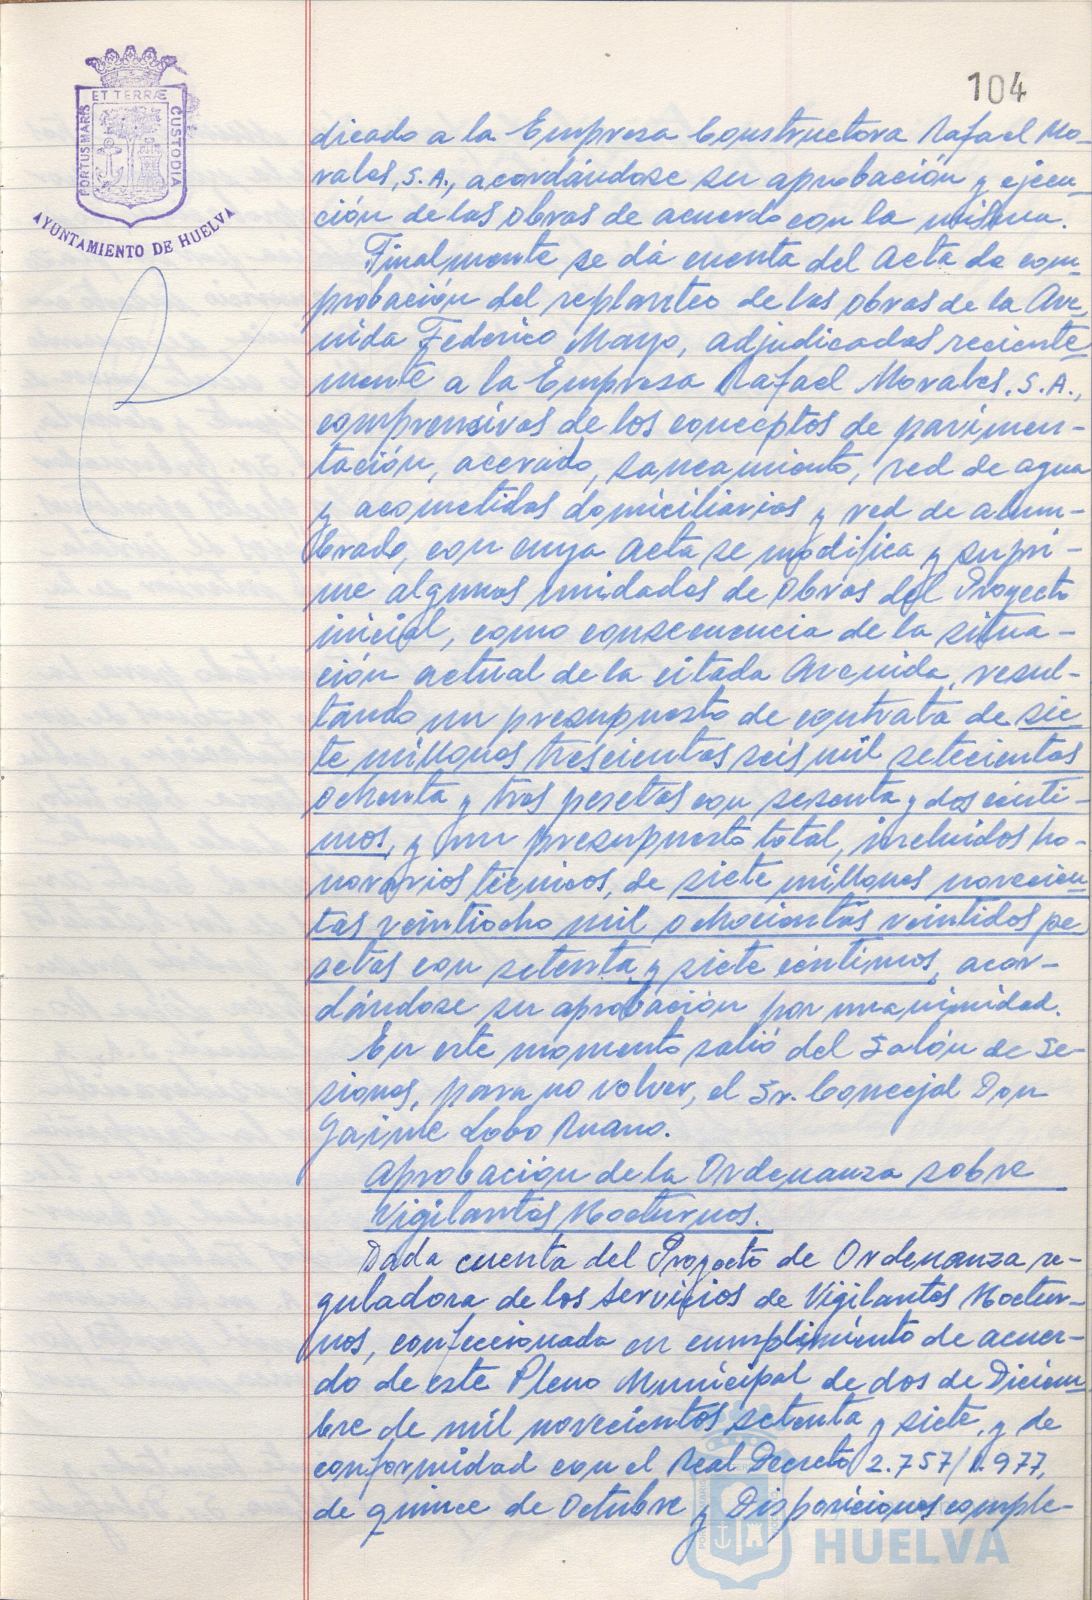 104
ET TERRÆ
PORTUS MARIS
CUSTODIA
AYUNTAMIENTO DE HUELVA
dicado a la Empresa Constructora Rafael Mo-
rales, S.A., acordándose su aprobación y ejecu-
ción de las obras de acuerdo con la misma.
Finalmente se dá cuenta del Acta de com-
probación del replanteo de las obras de la Ave-
nida Federico Mayo, adjudicadas reciente-
mente a la Empresa Rafael Morales, S.A.,
comprensivas de los conceptos de pavimen-
tación, acerado, saneamiento, red de agua
y acometidas domiciliarias y red de alum-
brado, con cuya Acta se modifica y supri-
me algunas unidades de obras del Proyecto
inicial, como consecuencia de la situa-
ción actual de la citada Avenida, resul-
tando un presupuesto de contrata de sie-
te millones trescientas seis mil setecientas
ochenta y tres pesetas con sesenta y dos cénti-
mos, y un presupuesto total, incluidos ho-
norarios técnicos, de siete millones novecien-
tas veintiocho mil ochocientas veintidos pe-
setas con setenta y siete céntimos, acor-
dándose su aprobación por unanimidad.
En este momento salió del Salón de Se-
siones, para no volver, el Sr. Concejal Don
Jaime Lobo Ruano.
Aprobación de la Ordenanza sobre
Vigilantes Nocturnos.
Dada cuenta del Proyecto de Ordenanza re-
guladora de los Servicios de Vigilantes Noctur-
nos, confeccionada en cumplimiento de acuer-
do de este Pleno Municipal de dos de Diciem-
bre de mil novecientos setenta y siete, y de
conformidad con el Real Decreto 2.757/1.977,
de quince de Octubre y Disposiciones comple-
HUELVA